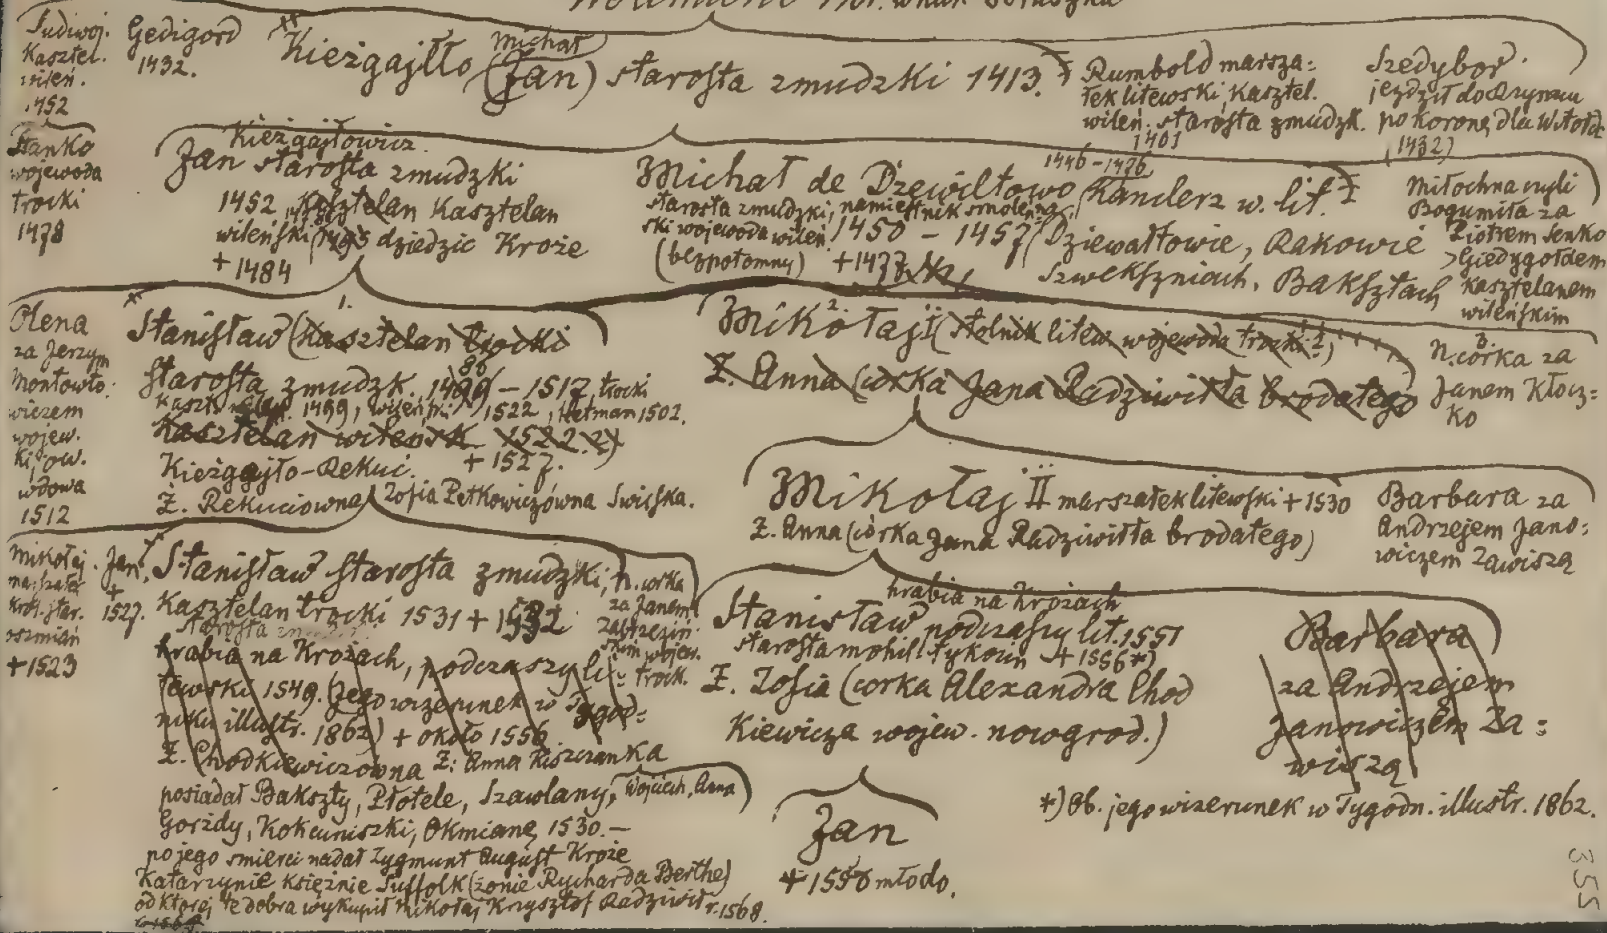 Wolimunt
wnuk
Sudiwoj.
Kasztel.
wileń.
1452
Gedigord
1432.
Michał
Kieżgajłło (Jan) starosta zmudzki 1413.
Rumbold marsza=
łek litewski, Kasztel.
wileń. starosta zmudzk.
1401
Szedybor
jeździł do Rzymu
po koronę dla Witolda
(1432)
Stanko
wojewoda
trocki
1478
Kieżgajłowicz.
Jan starosta zmudzki
1452 Kasztelan Kasztelan
wileński dziedzic Kroże
+ 1484
Michał de Dzewiltowo
starosta zmudzki, namiestnik smoleń=
ski wojewoda wileń. 1450 – 1457
(bezpotomny) + 1477
1446 – 1476
Kanclerz w. lit.
Dziewałtowie, Rakowie
Szwekszniach, Baksztach
Miłochna czyli
Bogumiła za
Piotrem Senko
Giedygołdem
Kasztelanem
wileńskim
Olena
za Jerzym
Montowto=
wiczem
wojew.
kijow.
wdowa
1512
1.
Stanisław (Kasztelan trocki
starosta zmudzk. 1486 – 1517, trocki
Kaszt. 1499, wileński 1522, Hetman 1502.
Kasztelan wileńsk. 1522
Kieżgajło-Rekuć. + 1527.
Ż. Rekuciowna, Zofia Petkowiczówna Świrska.
2
Mikołaj I (stolnik litew. wojewoda trocki)
Ż. Anna (córka Jana Radziwiłła brodatego
3
N. córka za
Janem Kłocz=
ko
Mikołaj II marszałek litewski + 1530
Ż. Anna (córka Jana Radziwiłła brodatego)
Barbara za
Andrzejem Jano=
wiczem Zawiszą
Mikołaj
marszałek
król. star.
oszmiań
+ 1523
Jan,
+
1527.
Stanisław starosta zmudzki,
Kasztelan trocki 1531 + 1532
hrabia na Krożach, podczaszy li=
tewski 1549. (jego wizerunek w Tygod=
niku illustr. 1862) + około 1556
Ż. Chodkiewiczowna Ż: Anna Kiszczanka
posiadał Bakszty, Płotele, Szawlany, Wojciech, Anna
Gorżdy, Kokuniszki, Okmianę 1530. –
po jego smierci nadał Zygmunt August Kroże
Katarzynie Księżnie Suffolk (żonie Rycharda Berthe)
od której te dobra wykupił Mikołaj Krzysztof Radziwił r. 1568.
N. corka
za Janem
Zabrzeziń=
skim wojew.
trock.
hrabia na Krożach
Stanisław podczaszy lit. 1551
starosta mohil. tykociń + 1556 *)
Ż. Zofia (corka Alexandra Chod
Kiewicza wojew. nowgrod.)
Barbara
za Andrzejem
Janowiczem Za=
wiszą
Jan
+ 1556 młodo.
*) Ob. jego wizerunek w Tygodn. illustr. 1862.
355